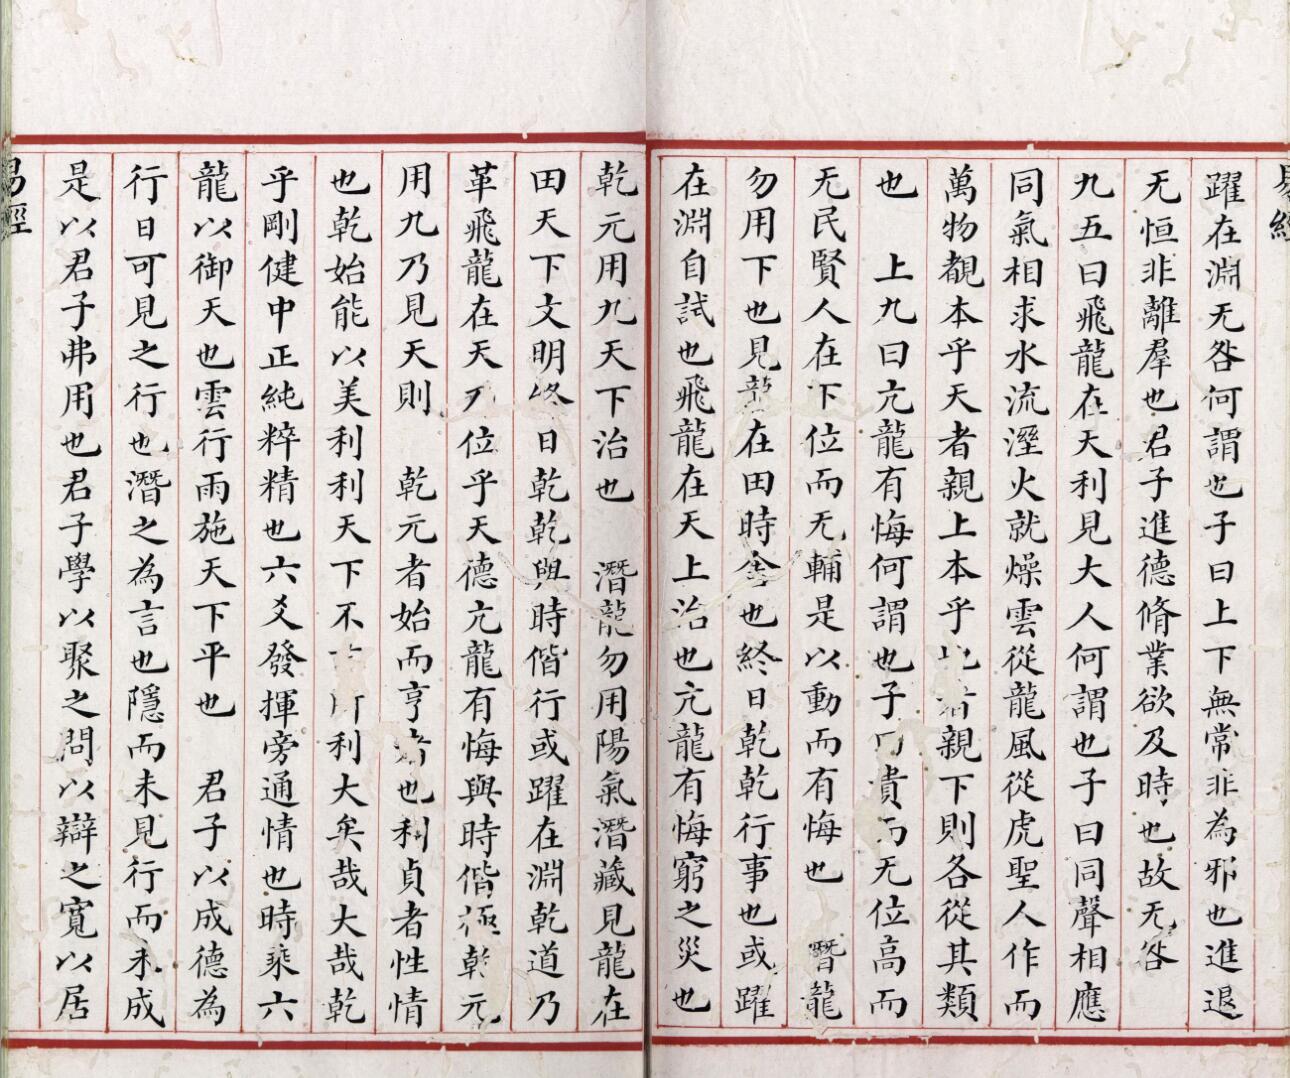 易經
躍在淵无咎何謂也子曰上下無常非為邪也進退
无恒非離羣也君子進德脩業欲及時也故无咎
九五曰飛龍在天利見大人何謂也子曰同聲相應
同氣相求水流溼火就燥雲從龍風從虎聖人作而
萬物覩本乎天者親上本乎地者親下則各從其類
也　上九曰亢龍有悔何謂也子曰貴而无位高而
无民賢人在下位而无輔是以動而有悔也　潛龍
勿用下也見龍在田時舍也終日乾乾行事也或躍
在淵自試也飛龍在天上治也亢龍有悔窮之災也
乾元用九天下治也　潛龍勿用陽氣潛藏見龍在
田天下文明終日乾乾與時偕行或躍在淵乾道乃
革飛龍在天乃位乎天德亢龍有悔與時偕極乾元
用九乃見天則　乾元者始而亨者也利貞者性情
也乾始能以美利利天下不言所利大矣哉大哉乾
乎剛健中正純粹精也六爻發揮旁通情也時乘六
龍以御天也雲行雨施天下平也　君子以成德為
行日可見之行也潛之為言也隱而未見行而未成
是以君子弗用也君子學以聚之問以辯之寬以居
易經